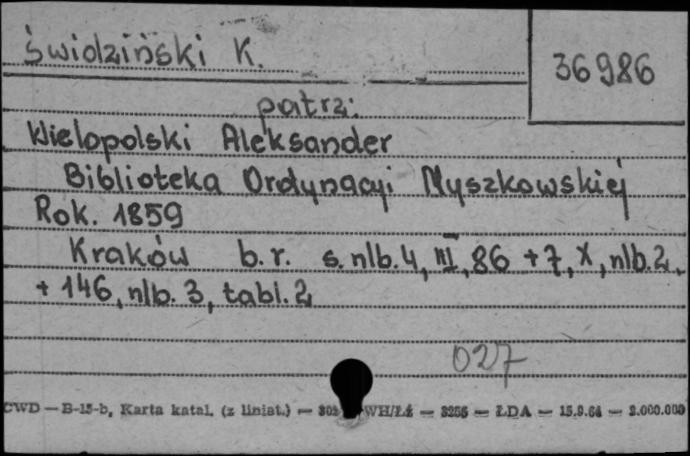 Świdziński K.
36986
patrz:
Wielopolski Aleksander
Biblioteka Ordynacyi Myszkowskiej
Rok. 1859
Kraków b. r. s. nlb. 4, III, 86 + 7, X, nlb. 2,
+ 146, nlb. 3, tabl. 2
027
CWD — B-15-b, Karta katal. (z liniat.) — WH/Łż — 3256 — ŁDA — 15.9.64 — 2.000.000